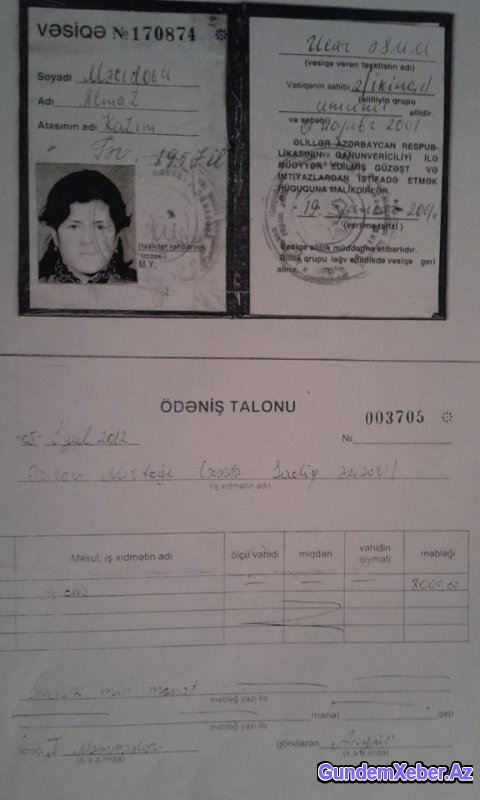 VƏSİQƏ №170874
Soyadı Məcidova
Adı Almaz
Atasının adı Kazım
(təşkilat rəhbərinin
imzası)
M.Y.
Ucar
(vəsiqə verən təşkilatın adı)
Vəsiqənin sahibi 2/ikinci/
(əlilliyin qrupu
ümumi əlildir.
və səbəbi)
2001
ƏLİLLƏR AZƏRBAYCAN RESPUB-
LİKASININ QANUNVERİCİLİYİ İLƏ
MÜƏYYƏN EDİLMİŞ GÜZƏŞT VƏ
İMTİYAZLARDAN İSTİFADƏ ETMƏK
HÜQUQUNA MALİKDİRLƏR.
19
(verilmə tarixi)
Vəsiqə əlillik müddətinə etibarlıdır.
Əlillik qrupu ləğv edildikdə vəsiqə geri
alınır.
ÖDƏNİŞ TALONU
003705
05 İyul 2012
№
(iş xidmətin adı)
Məsul, iş xidmətin adı ölçü vahidi miqdarı vahidin qiyməti məbləği
8000,00
min manat
məbləğ yazı ilə
manat qəp
məbləğ yazı ilə
İcraçı
(s.a.a.imza)
göndərən
(s.a.a.imza)
GundemXeber.Az